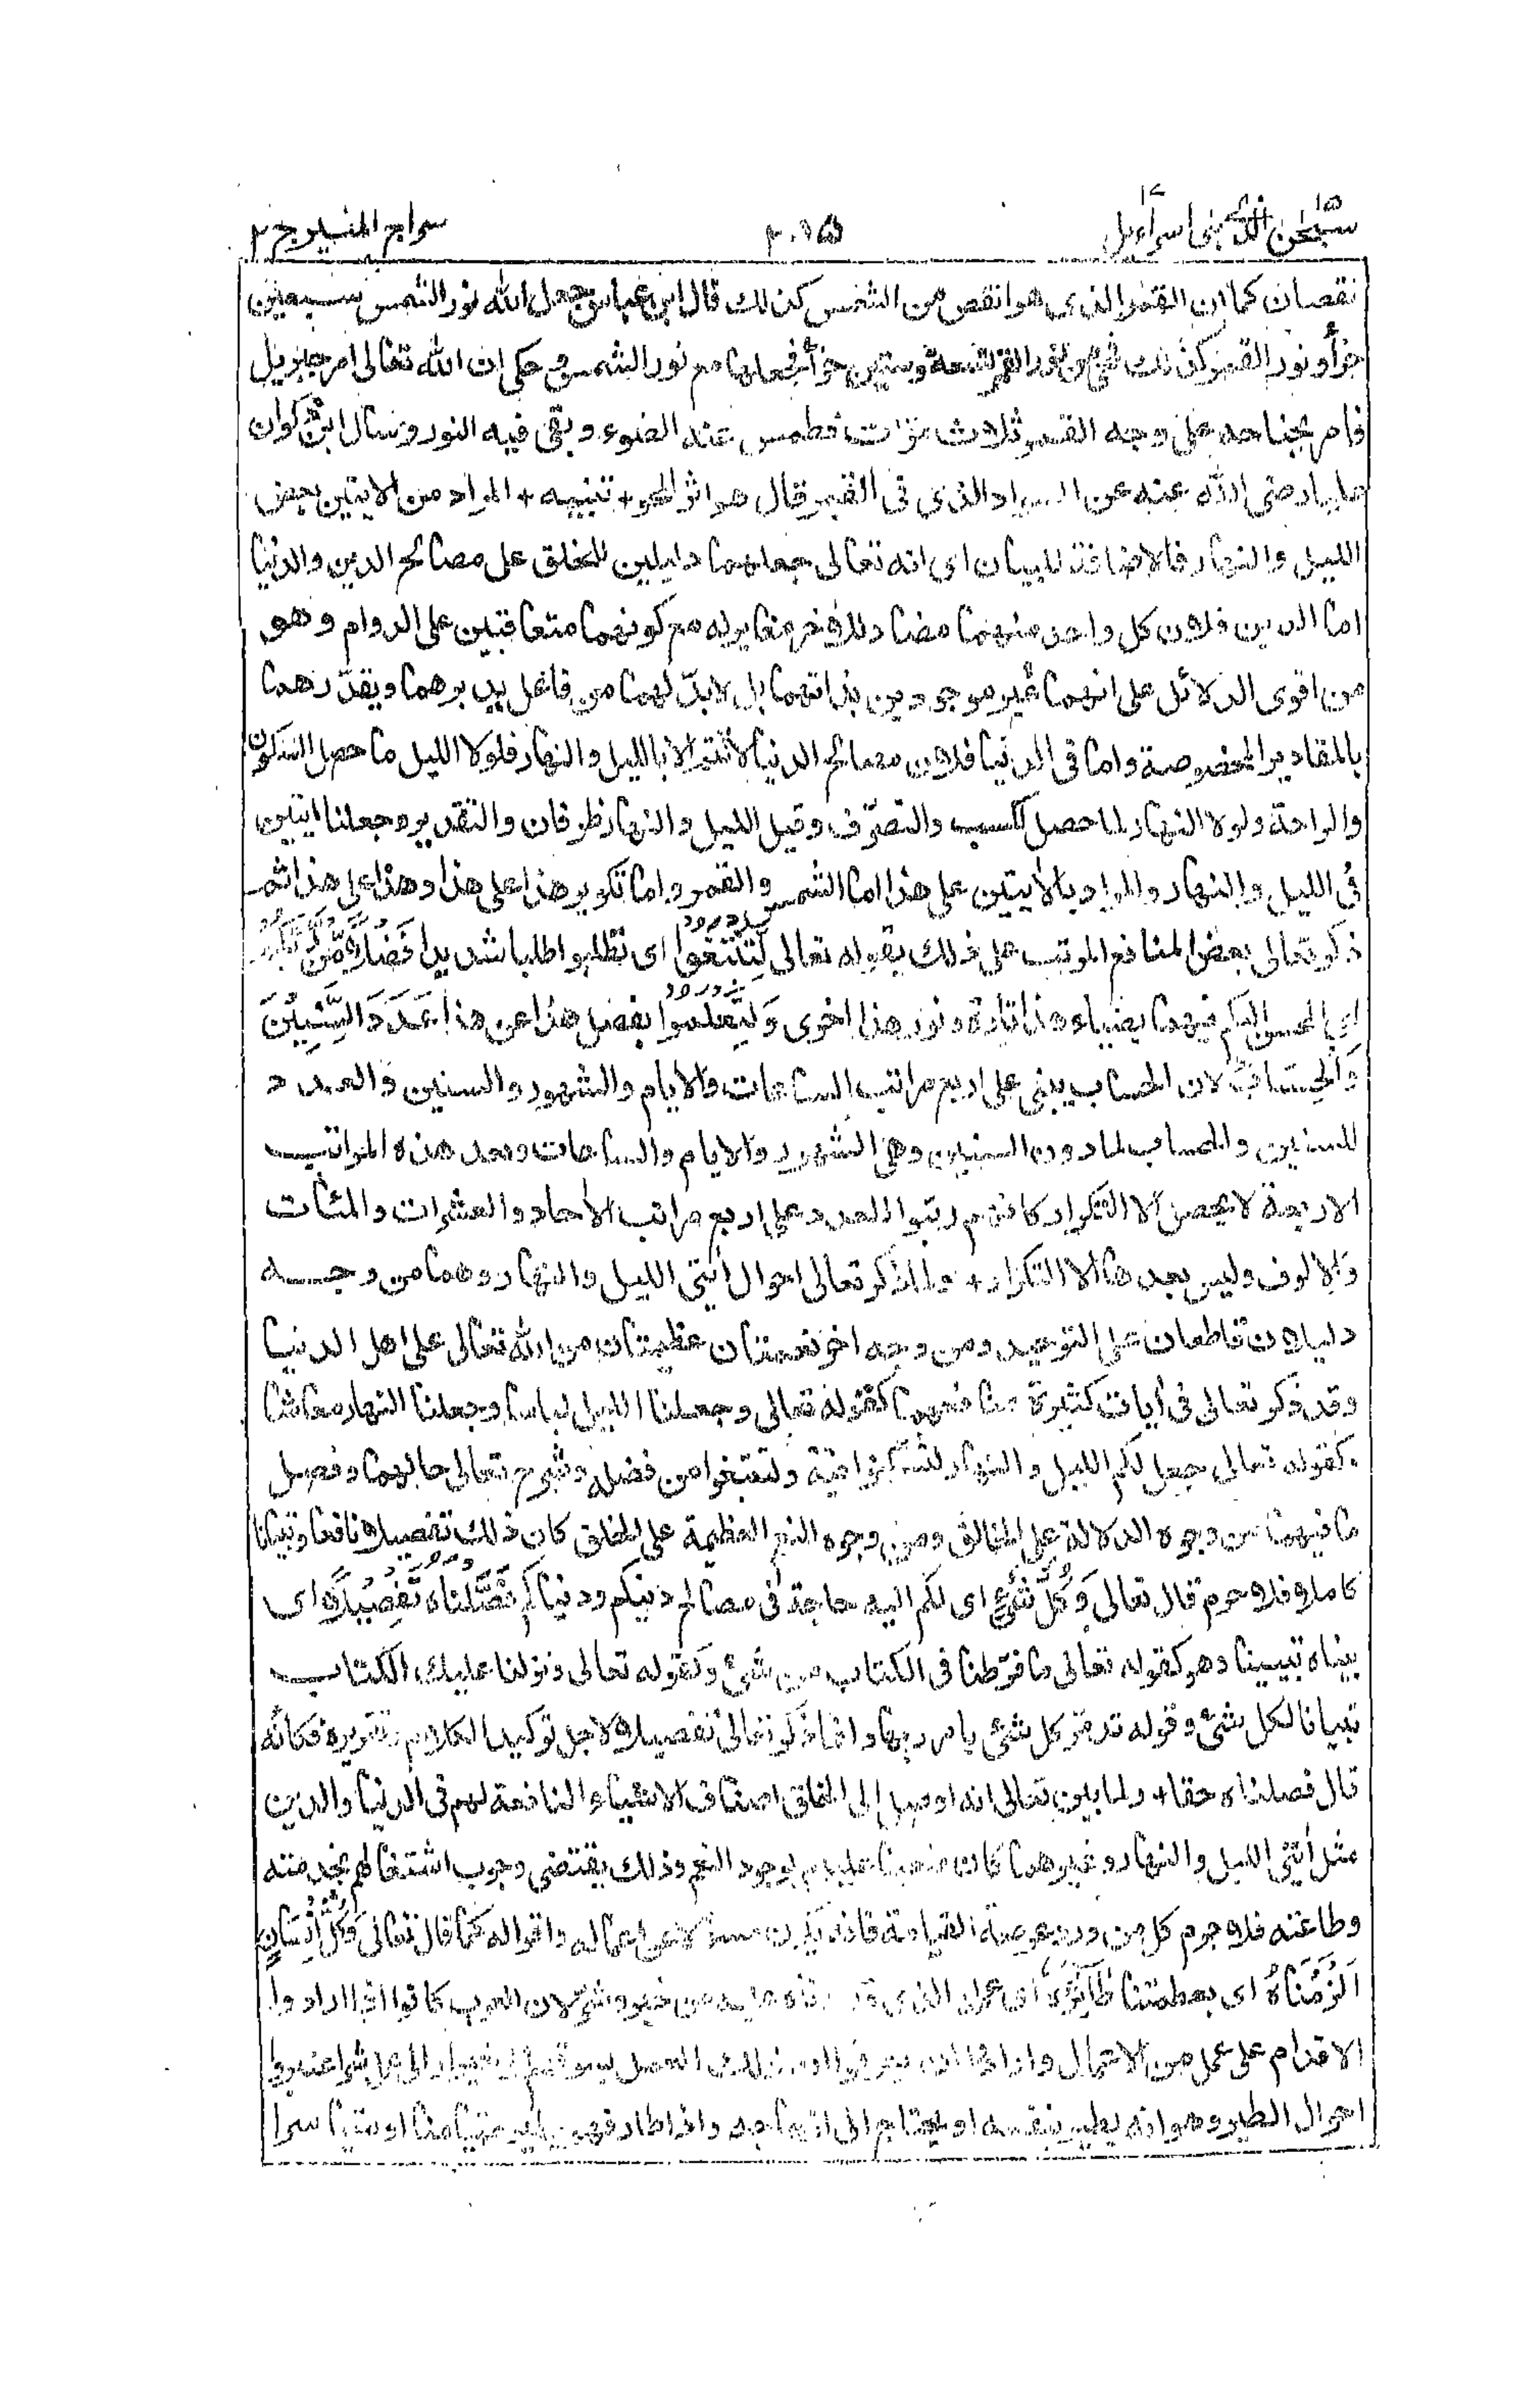 سبحن الذى ١٥ بنى اسرائيل ١٧
٢٠١٥
سراج المنير ج ٢
نقصان كما ان القمر الذى هو انقص من الشمس كذلك قال ابن عباس جعل الله نور الشمس سبعين
جزأ ونور القمر كذلك فمحى من نور القمر تسعة وستين جزأ فجعلها مع نور الشمس وحكى ان الله تعالى امر جبريل
فامر بجناحه على وجه القمر ثلاث مرات فطمس عنه الضوء وبقى فيه النور وسأل ابن الكوا
عليا رضى الله عنه عن السواد الذى فى القمر فقال هو اثر المحو + تنبيه + المراد من الايتين بعض
الليل والنهار فالاضافة للبيان اى انه تعالى جعلهما دليلين للخلق على مصالح الدين والدنيا
اما الدين فلان كل واحد منهما مضاد للاخر مغاير له مع كونهما متعاقبين على الدوام وهو
من اقوى الدلائل على انهما غير موجودين بذاتهما بل لابدّ لهما من فاعل يدبرهما ويقدّرهما
بالمقادير المخصوصة واما فى الدنيا فلان مصالح الدنيا لا تتم الا بالليل والنهار فلولا الليل ما حصل السكون
والراحة ولولا النهار لما حصل الكسب والتصرّف وقيل الليل والنهار ظرفان والتقدير وجعلنا ايتين
فى الليل والنهار والمراد بالايتين على هذا اما الشمس والقمر واما تكوير هذا على هذا وهذا على هذا ثم
ذكر تعالى بعض المنافع المرتب على ذلك بقوله تعالى لِتَبْتَغُوا اى تطلبوا طلبا شديدا فَضْلًا مِّن رَّبِّكُمْ
اى المحسن اليكم فيهما بضياء هذا تارة ونور هذا اخرى وَلِتَعْلَمُوا بفصل هذا عن هذا عَدَدَ السِّنِينَ
وَالْحِسَابَ لان الحساب يبنى على اربع مراتب الساعات والايام والشهور والسنين والعدد
للسنين والحساب لما دون السنين وهى الشهور والايام والساعات وبعد هذه المراتب
الاربعة لا يحصل الا التكرار كما انهم رتبوا العدد على اربع مراتب الأحاد والعشرات والمئات
والالوف وليس بعدها الا التكرار + ولما ذكر تعالى احوال أيتى الليل والنهار وهما من وجه
دليلان قاطعان على التوحيد ومن وجه اخر نعمتان عظيمتان من الله تعالى على اهل الدنيا
وقد ذكر تعالى فى أيات كثيرة منافعهما كقوله تعالى وجعلنا الليل لباسا وجعلنا النهار معاشا
وكقوله تعالى جعل لكم الليل والنهار لتسكنوا فيه ولتبتغوا من فضله وشرح تعالى حالهما وفصل
ما فيهما من وجوه الدلالة على الخالق ومن وجوه النعم العظيمة على الخلق كان ذلك تفصيلا نافعا وتبيانا
كاملا فلا جرم قال تعالى وَكُلَّ شَيْءٍ اى لكم اليه حاجة فى مصالح دينكم ودنياكم فَصَّلْنَاهُ تَفْصِيلًا اى
بيناه تبيينا وهو كقوله تعالى ما فرّطنا فى الكتاب من شئ وكقوله تعالى ونزلنا عليك الكتاب
تبيانا لكل شئ وقوله تدمّر كل شئ بامر ربها وانما ذكر تعالى تفصيلا لاجل توكيد الكلام وتقريره فكانّه
قال فصلناه حقا + ولما بين تعالى انه اوصل إلى الخلق اصناف الاشياء النافعة لهم فى الدنيا والدين
مثل أيتى الليل والنهار وغيرهما كان منعما عليهم بوجود النعم وذلك يقتضى وجوب اشتغالهم بخدمته
وطاعته فلا جرم كل من ورد عرصة القيامة فانه يكون مسؤلا عن اعماله واقواله كما قال تعالى وَكُلَّ إِنسَانٍ
أَلْزَمْنَاهُ اى بعظمتنا طَآئِرَهُ اى عمله الذى قدرناه عليه من خير وشرّ لان العرب كانوا اذا ارادوا
الاقدام على عمل من الاعمال وارادوا ان يعرفوا ان ذلك العمل يسوقهم الى خير او الى شر اعتبروا
احوال الطير وهو انه يطير بنفسه او يحتاج الى ازعاجه واذا طار فهو يطير متيامنا او متياسرا